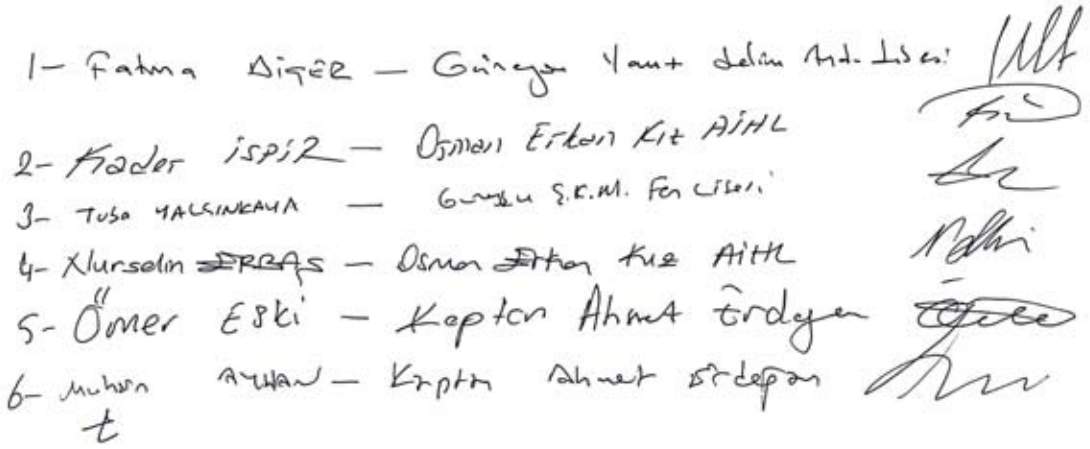 1- Fatma DiğER — Güneysu Yavuz Selim And. Lisesi
2- Kader İSPİR — Osman Erkan Kız AİHL
3- Tuba YALÇINKAYA — Güneysu Ş.K.M. Fen Lisesi
4- Nurselin ERBAŞ — Osman Erkan Kız AİHL
5- Ömer Eski — Kaptan Ahmet Erdogan
6- AYHAN — Kaptan Ahmet Erdoğan